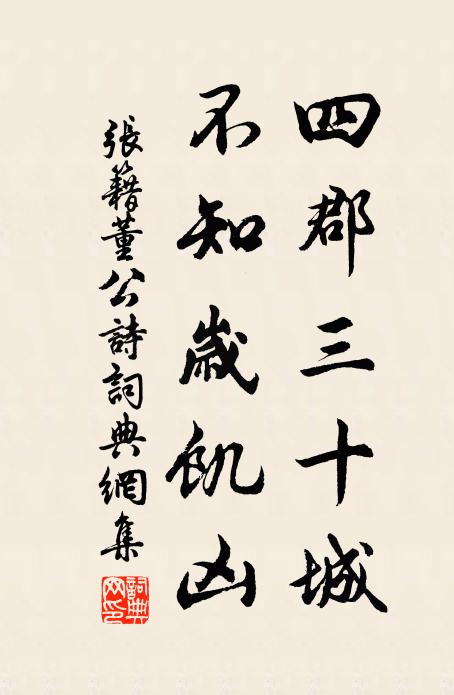 四郡三十城
不知歲飢凶
張籍董公詩詞典網集
詞典網印